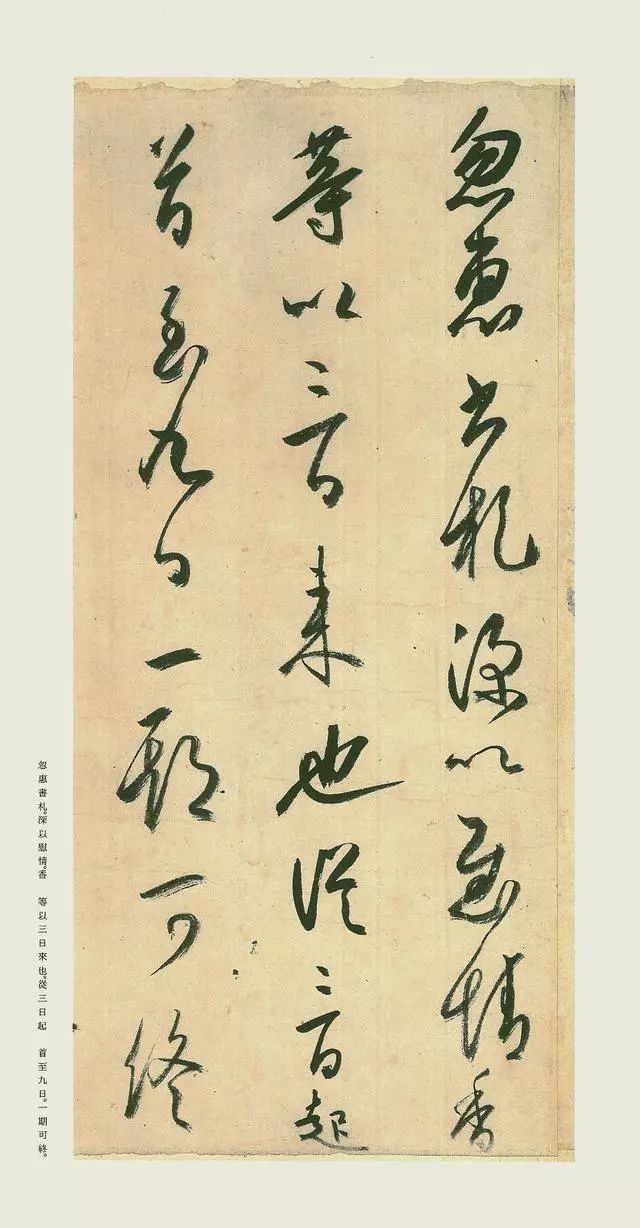 忽惠書札深以慰情香
等以三日来也從三日起
首至九日一期可終
忽惠書札。深以慰情。香　等以三日來也。從三日起　首至九日。一期可終。